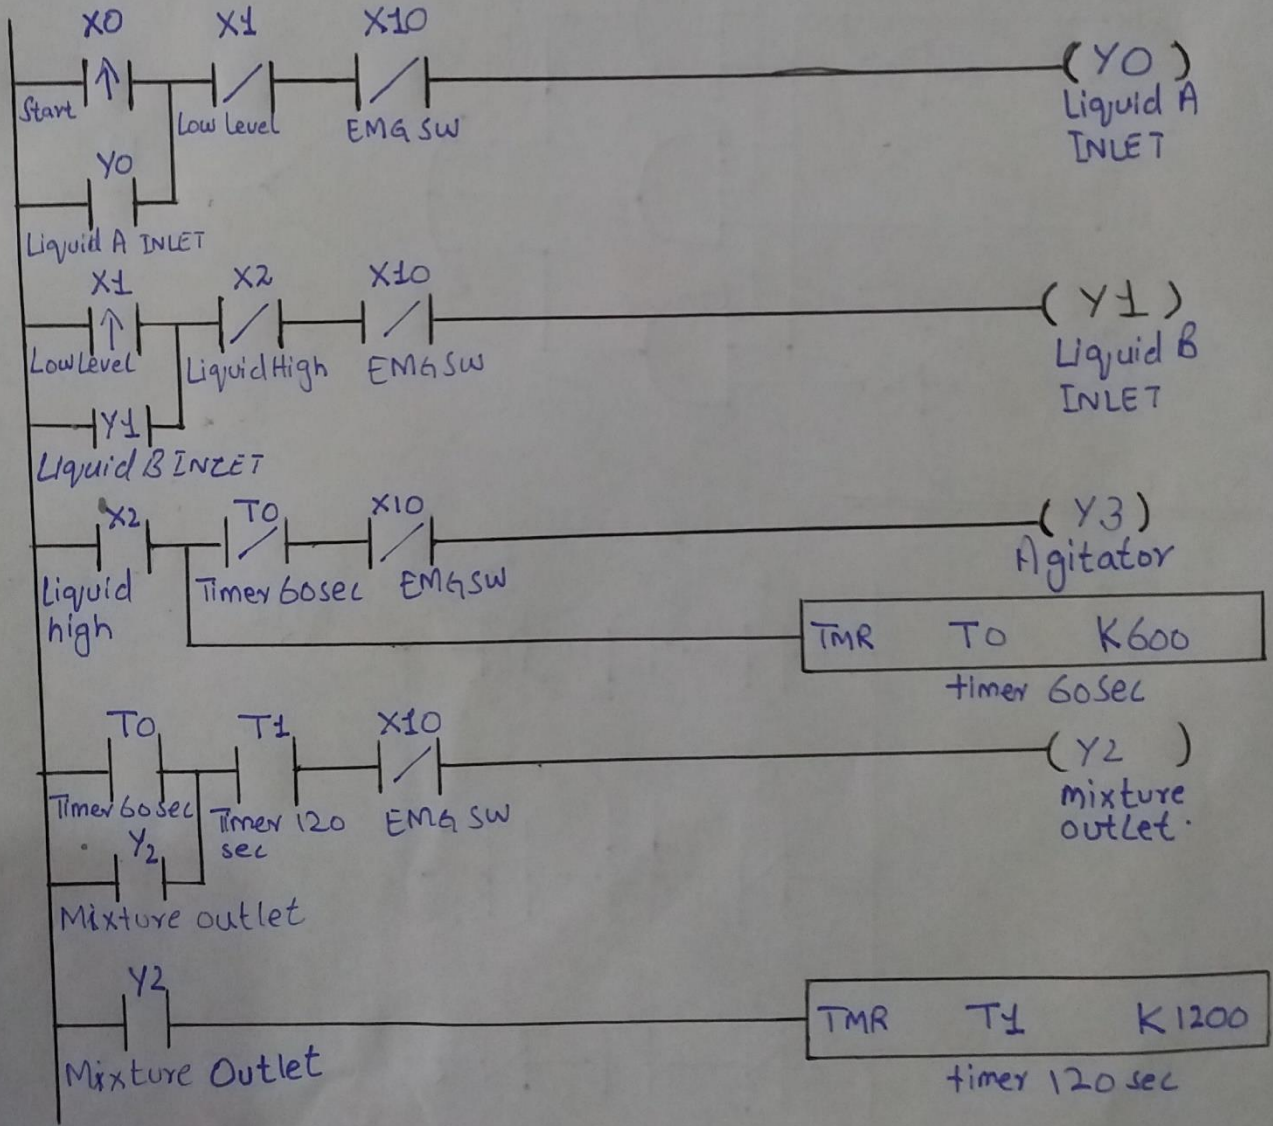 X0 X1 X10
(Y0)
Start Low Level EMG SW Liquid A
INLET
Y0
Liquid A INLET
X1 X2 X10
(Y1)
Low Level Liquid High EMG SW Liquid B
INLET
Y1
Liquid B INLET
X2 T0 X10 (Y3)
Liquid Timer 60sec EMG SW Agitator
high
TMR T0 K600
timer 60sec
T0 T1 X10
(Y2)
Timer 60sec Timer 120 EMG SW mixture
sec outlet.
Y2
Mixture outlet
Y2
TMR T1 K1200
Mixture Outlet timer 120 sec